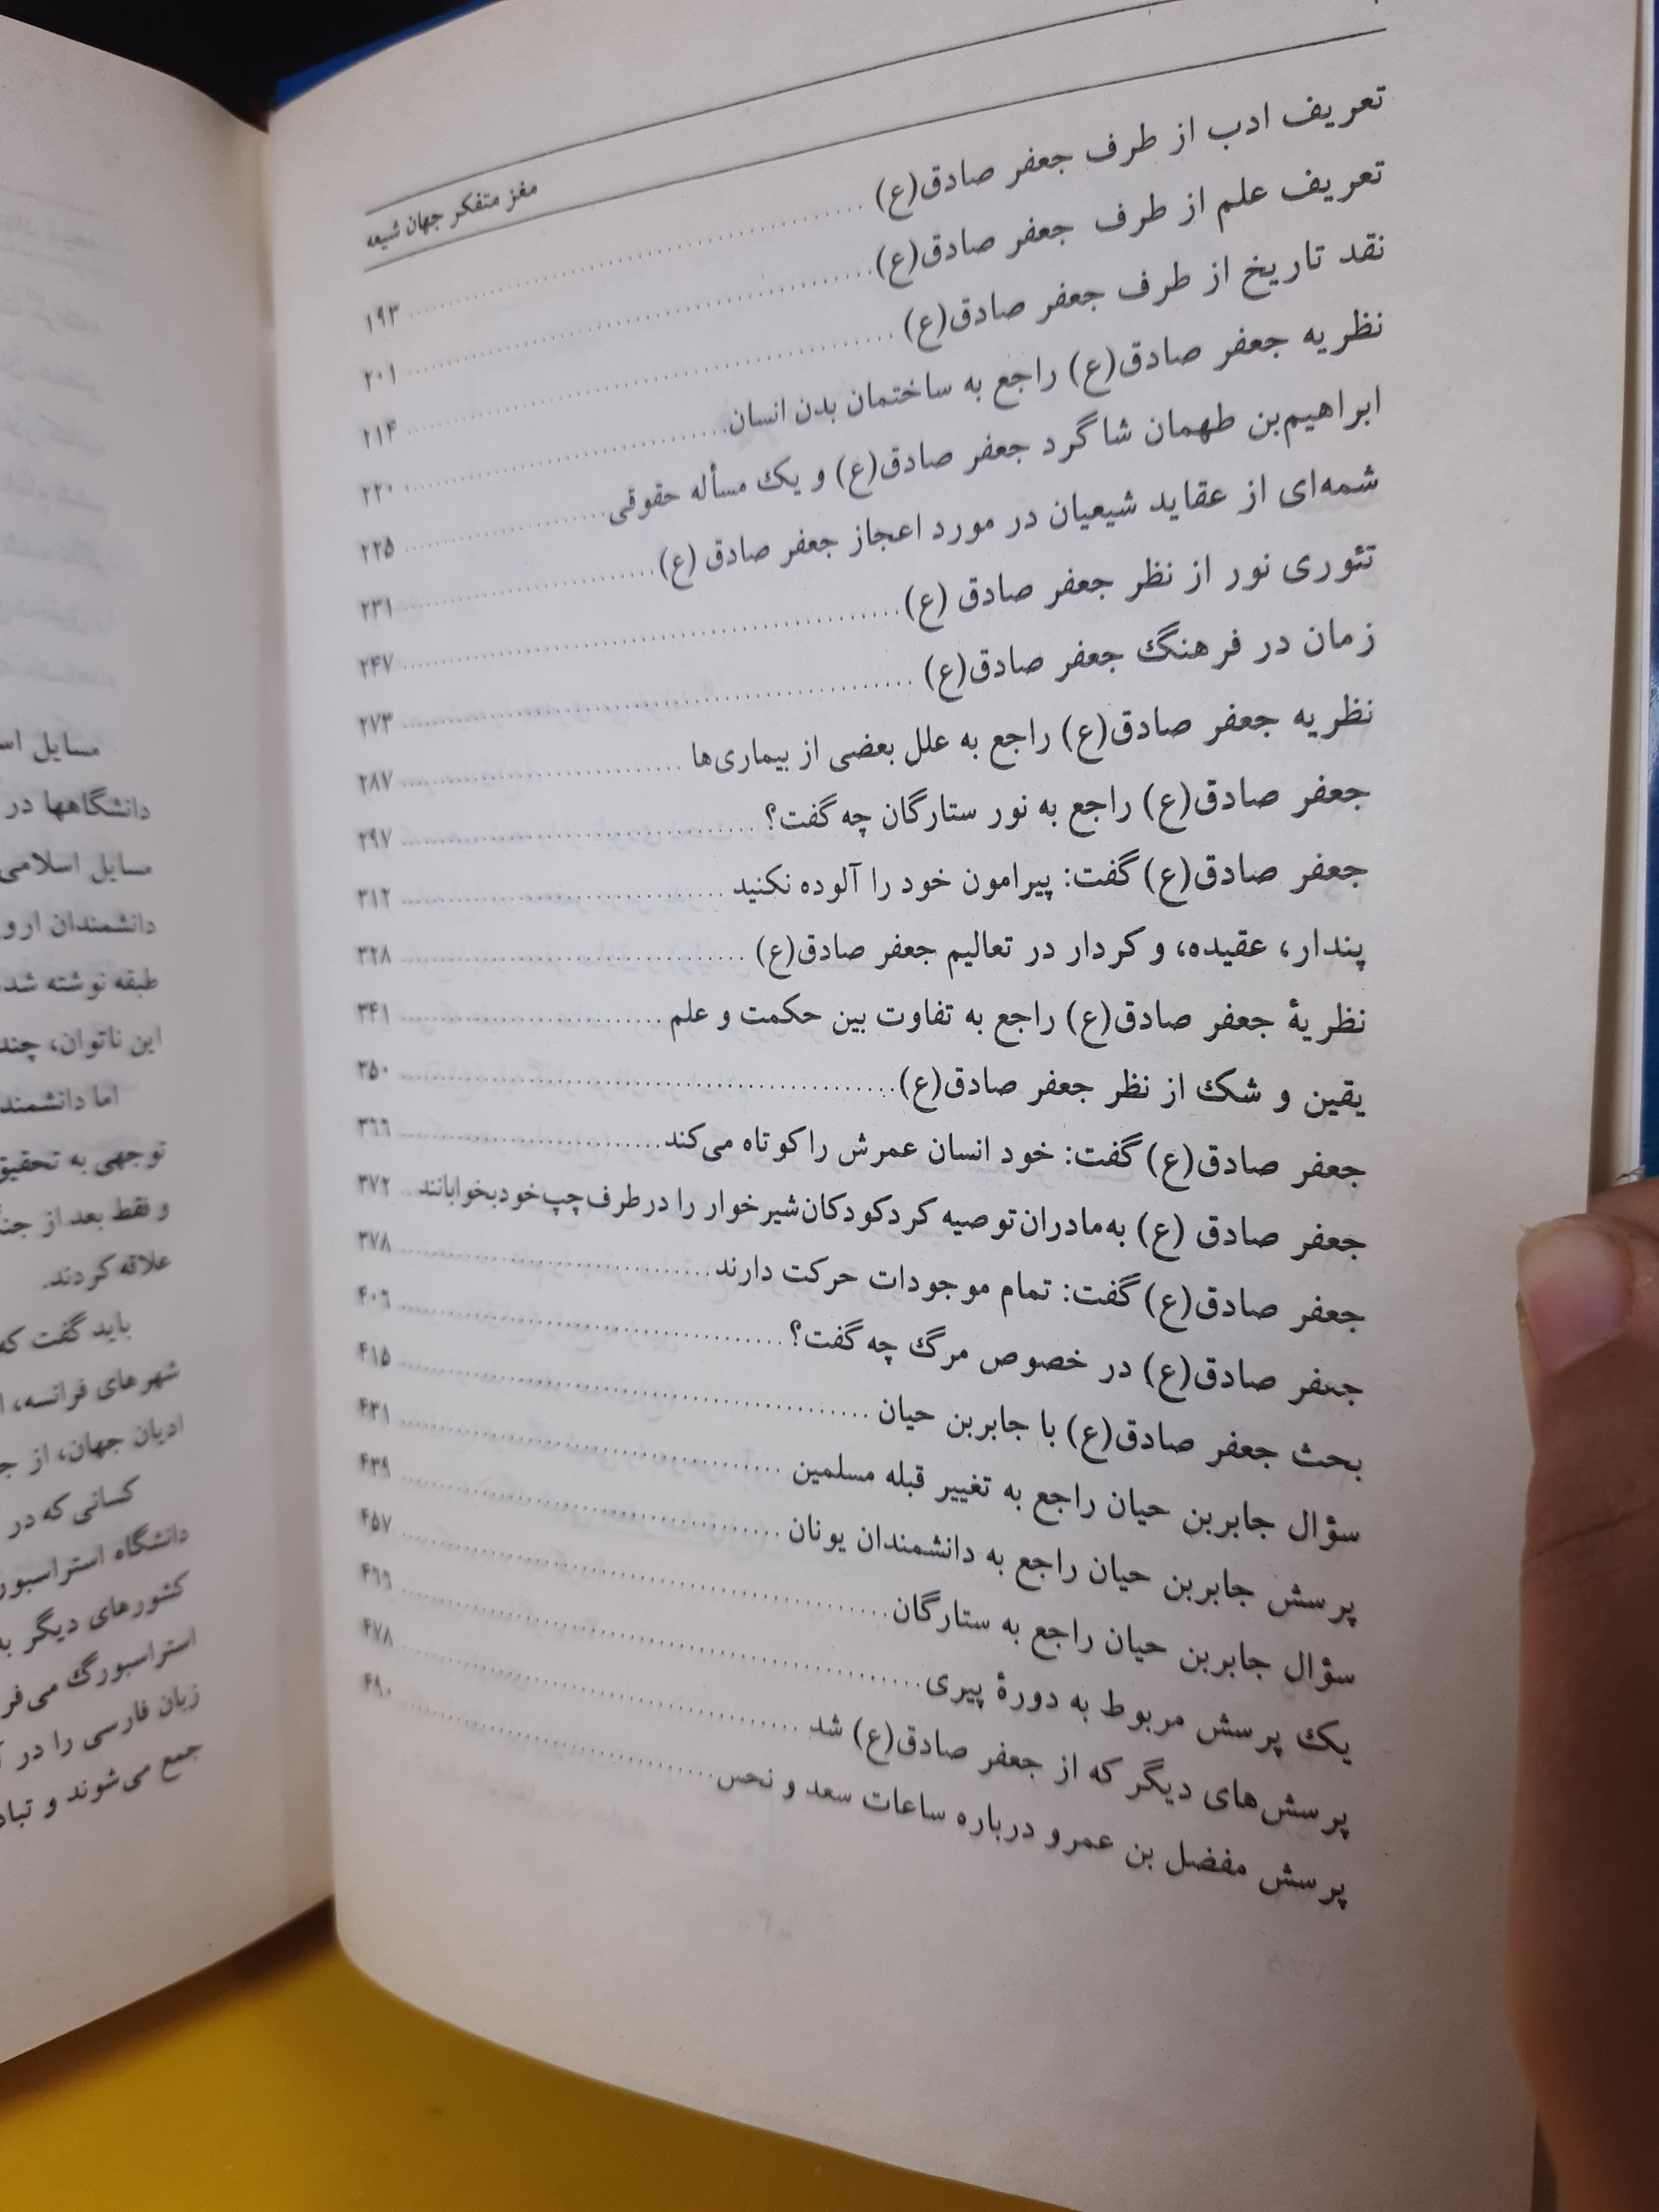 مغز متفکر جهان شیعه
تعریف ادب از طرف جعفر صادق(ع) ........ ۱۹۳
تعریف علم از طرف جعفر صادق(ع) ........ ۲۰۱
نقد تاریخ از طرف جعفر صادق(ع) ........ ۲۱۴
نظریه جعفر صادق(ع) راجع به ساختمان بدن انسان ........ ۲۲۰
ابراهیم‌بن طهمان شاگرد جعفر صادق(ع) و یک مسأله حقوقی ........ ۲۲۵
شمه‌ای از عقاید شیعیان در مورد اعجاز جعفر صادق (ع) ........ ۲۳۱
تئوری نور از نظر جعفر صادق (ع) ........ ۲۴۷
زمان در فرهنگ جعفر صادق(ع) ........ ۲۷۳
نظریه جعفر صادق(ع) راجع به علل بعضی از بیماری‌ها ........ ۲۸۷
جعفر صادق(ع) راجع به نور ستارگان چه گفت؟ ........ ۲۹۷
جعفر صادق(ع) گفت: پیرامون خود را آلوده نکنید ........ ۳۱۲
پندار، عقیده، و کردار در تعالیم جعفر صادق(ع) ........ ۳۲۸
نظریهٔ جعفر صادق(ع) راجع به تفاوت بین حکمت و علم ........ ۳۴۱
یقین و شک از نظر جعفر صادق(ع) ........ ۳۵۰
جعفر صادق(ع) گفت: خود انسان عمرش را کوتاه می‌کند ........ ۳۶۶
جعفر صادق (ع) به‌مادران توصیه کرد کودکان شیرخوار را در طرف چپ خود بخوابانند .. ۳۷۲
جعفر صادق(ع) گفت: تمام موجودات حرکت دارند ........ ۳۷۸
جعفر صادق(ع) در خصوص مرگ چه گفت؟ ........ ۴۰۶
بحث جعفر صادق(ع) با جابربن حیان ........ ۴۱۵
سؤال جابربن حیان راجع به تغییر قبله مسلمین ........ ۴۳۱
پرسش جابربن حیان راجع به دانشمندان یونان ........ ۴۳۹
سؤال جابربن حیان راجع به ستارگان ........ ۴۵۷
یک پرسش مربوط به دورهٔ پیری ........ ۴۶۶
پرسش‌های دیگر که از جعفر صادق(ع) شد ........ ۴۷۸
پرسش مفضل بن عمرو درباره ساعات سعد و نحس ........ ۴۹۰
مسایل
دانشگاهها در
مسایل اسلامی
دانشمندان
طبقه نوشته شد
این ناتوان، چند
اما دانشمند
توجهی به تحقیق
و فقط بعد از
علاقه کردند.
باید گفت که
شهرهای فرانسه،
ادیان جهان، از
کسانی که در
دانشگاه
کشورهای دیگر
استراسبورگ
زبان فارسی را در
جمع می‌شوند و